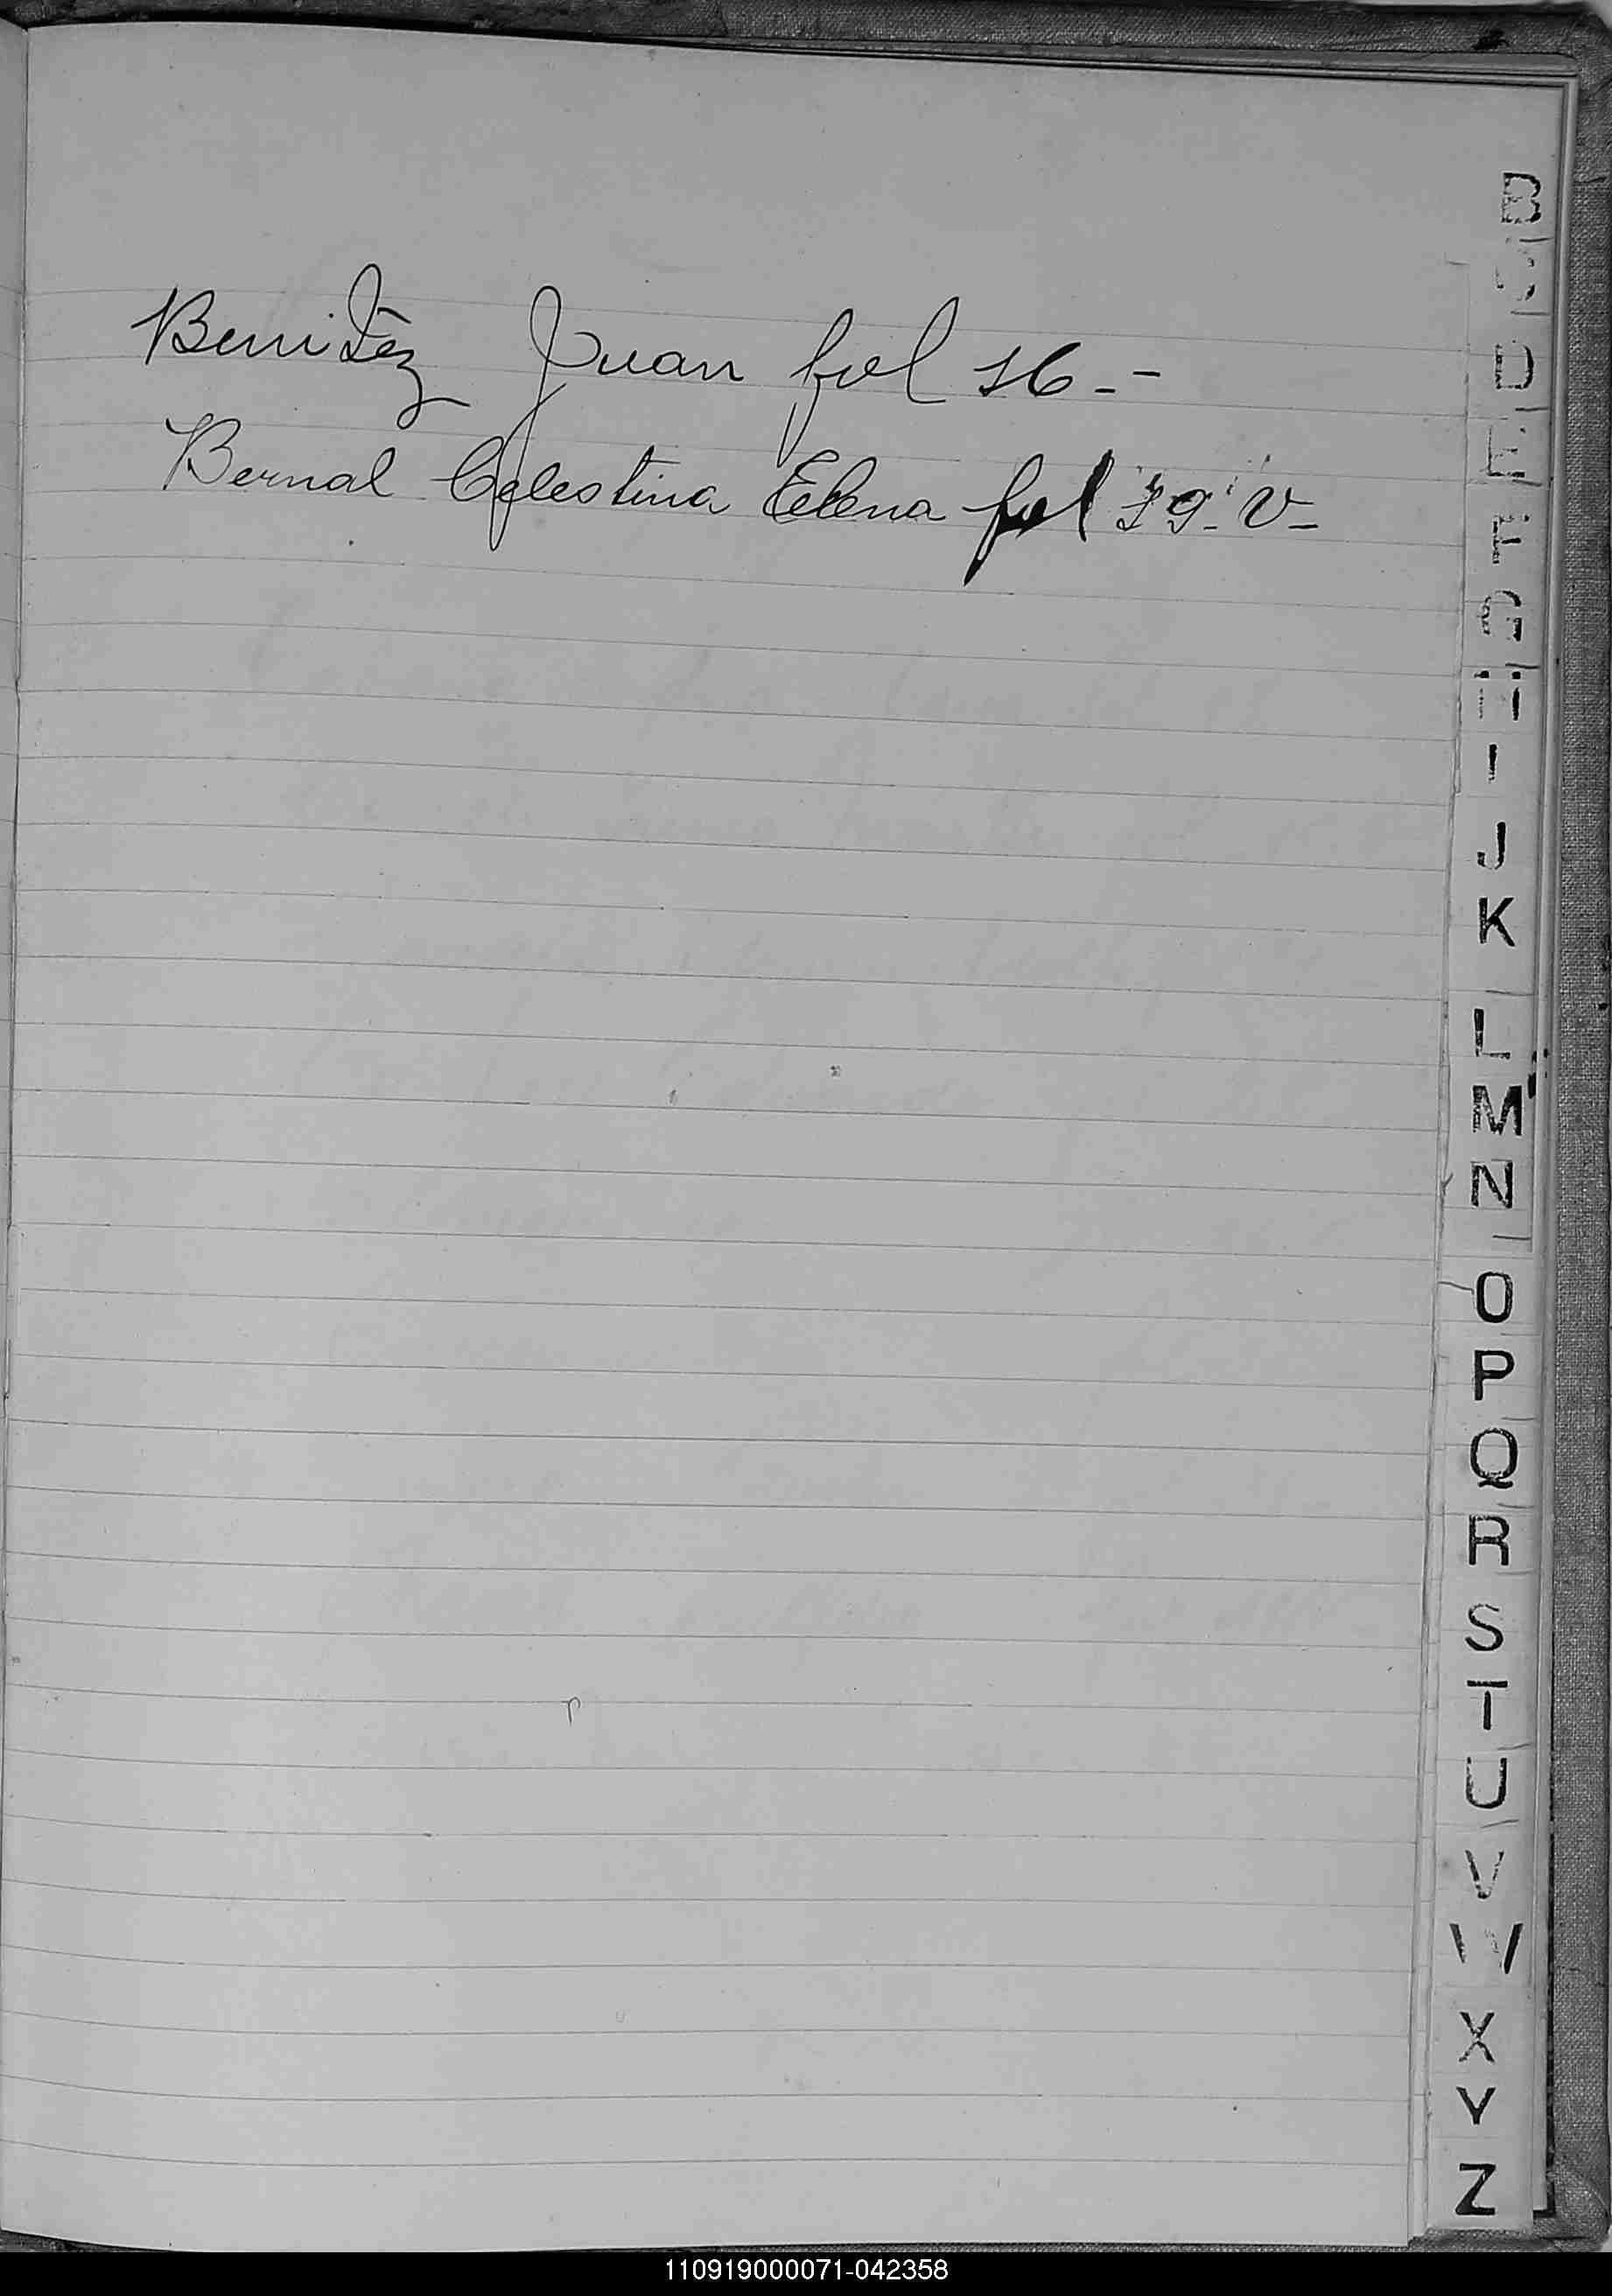 Benitez Juan fol 16.-
Bernal Celestina Elena fol 19. V-
B
C
D
E
F
G
H
I
J
K
L
M
N
O
P
Q
R
S
T
U
V
W
X
Y
Z
110919000071-042358